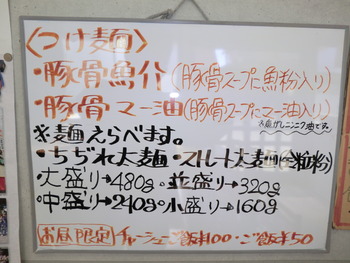 〈つけ麺〉
・豚骨魚介(豚骨スープに魚粉入り)
・豚骨マー油(豚骨スープにマー油入り)
※焦がしニンニク油です。
※麺えらべます。
・ちぢれ太麺・ストレート太麺(全粒粉)
・大盛り→480g・並盛り→320g
・中盛り→240g・小盛り→160g
お昼限定 チャーシューご飯¥100・ご飯¥50